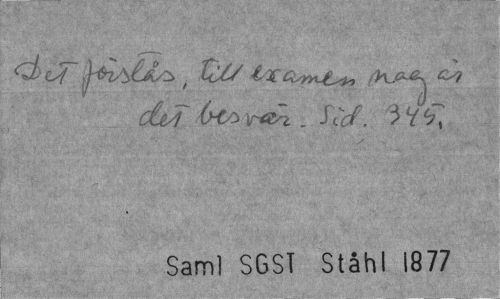 Det förstås, till examen nog är
det besvär. Sid. 345.
Saml SGST Ståhl 1877